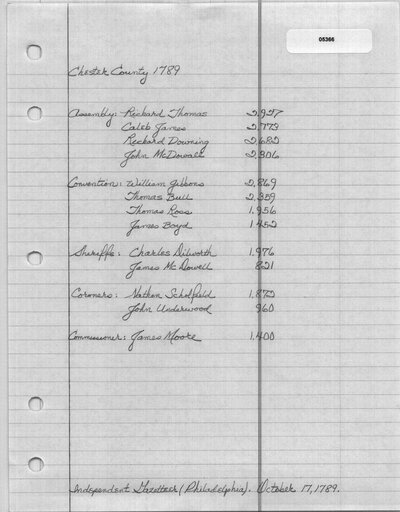 05366
Chester County 1789
Assembly: Richard Thomas 2,927
Caleb James 2,773
Richard Downing 2,682
John McDowell 2,306
Convention: William Gibbons 2,869
Thomas Bull 2,359
Thomas Ross 1,956
James Boyd 1,452
Sheriffs: Charles Dilworth 1,976
James McDowell 821
Coroners: Nathan Scholfield 1,872
John Underwood 960
Commissioner: James Moore 1,400
Independent Gazetteer (Philadelphia). October 17, 1789.